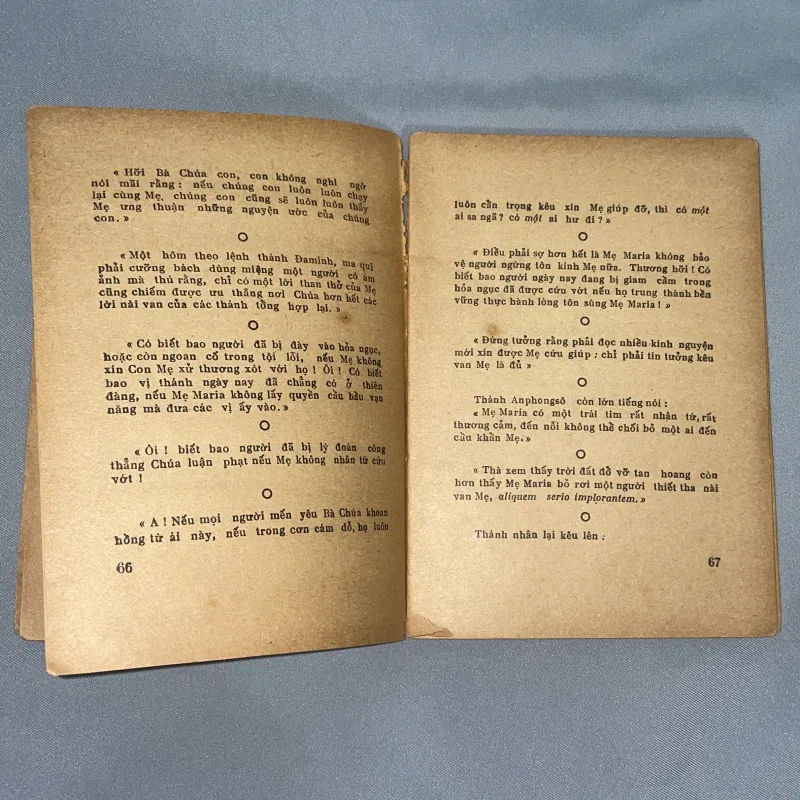 « Hỡi Bà Chúa con, con không nghi ngờ
nói mãi rằng : nếu chúng con luôn luôn chạy
lại cùng Mẹ, chúng con cũng sẽ luôn luôn thấy
Mẹ ưng thuận những nguyện ước của chúng
con. »
« Một hôm theo lệnh thánh Đaminh, ma quỉ
phải cưỡng bách dùng miệng một người có ám
ảnh mà thú rằng, chỉ có một lời than thở của Mẹ
cũng chiếm được ưu thắng nơi Chúa hơn hết các
lời nài van của các thánh tổng hợp lại. »
« Có biết bao người đã bị đày vào hỏa ngục,
hoặc còn ngoan cố trong tội lỗi, nếu Mẹ không
xin Con Mẹ xử thương xót với họ ! Ôi ! Có biết
bao vị thánh ngày nay đã chẳng có ở thiên
đàng, nếu Mẹ Maria không lấy quyền cầu bầu vạn
năng mà đưa các vị ấy vào. »
« Ôi ! biết bao người đã bị lý đoán công
thẳng Chúa luận phạt nếu Mẹ không nhân từ cứu
vớt !
« A ! Nếu mọi người mến yêu Bà Chúa khoan
hồng từ ái này, nếu trong cơn cám dỗ, họ luôn
66
luôn cần trọng kêu xin Mẹ giúp đỡ, thì có một
ai sa ngã ? có một ai hư đi ? »
« Điều phải sợ hơn hết là Mẹ Maria không bảo
vệ người ngừng tôn kính Mẹ nữa. Thương hỡi ! Có
biết bao người ngày nay đang bị giam cầm trong
hỏa ngục đã được cứu vớt nếu họ trung thành bền
vững thực hành lòng tôn sùng Mẹ Maria ! »
« Đừng tưởng rằng phải đọc nhiều kinh nguyện
mới xin được Mẹ cứu giúp : chỉ phải tin tưởng kêu
van Mẹ là đủ »
Thánh Anphongsô còn lớn tiếng nói :
« Mẹ Maria có một trái tim rất nhân từ, rất
thương cảm, đến nỗi không thể chối bỏ một ai đến
cầu khẩn Mẹ. »
« Thà xem thấy trời đất đổ vỡ tan hoang còn
hơn thấy Mẹ Maria bỏ rơi một người thiết tha nài
van Mẹ, aliquem serio implorantem. »
Thánh nhân lại kêu lên :
67